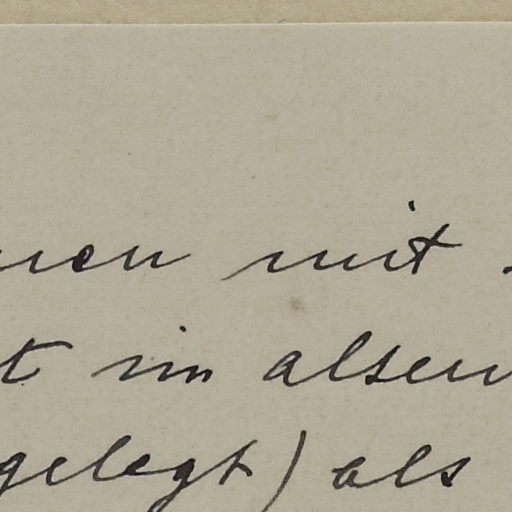 nen mit
t im alsen
gelegt) als